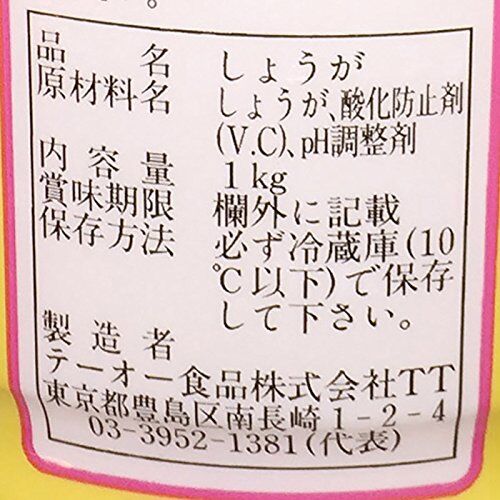 い。
品名 しょうが
原材料名 しょうが、酸化防止剤
(V.C)、pH調整剤
内容量 1kg
賞味期限 欄外に記載
保存方法 必ず冷蔵庫(10
℃以下)で保存
して下さい。
製造者
テーオー食品株式会社TT
東京都豊島区南長崎1-2-4
03-3952-1381(代表)